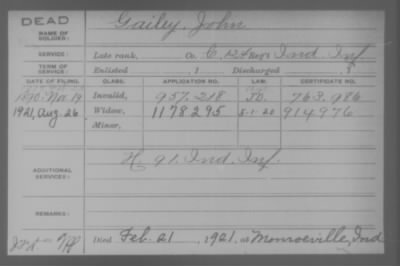 DEAD
NAME OF SOLDIER: Gailey, John
SERVICE: Late rank, Co. C, 12 Ind. Inf.
TERM OF SERVICE: Enlisted , 1 Discharged , 1
DATE OF FILING. CLASS. APPLICATION NO. LAW. CERTIFICATE NO.
1890. Nov. 19 Invalid, 957.218 763.986
1921, Aug. 26 Widow, 1178295 5-1-20 914976
Minor,
ADDITIONAL SERVICES: H. 91. Ind. Inf.
REMARKS:
Died Feb. 21, 1921, at Monroeville, Ind